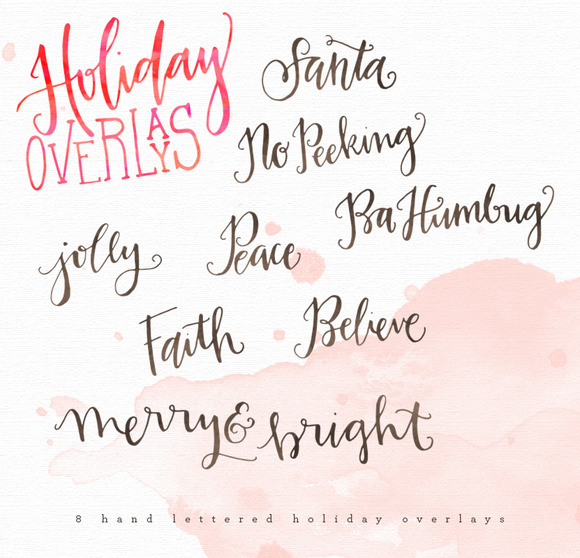 Holiday
OVERLAYS
Santa
No Peeking
Ba Humbug
jolly
Peace
Faith
Believe
merry & bright
8 hand lettered holiday overlays